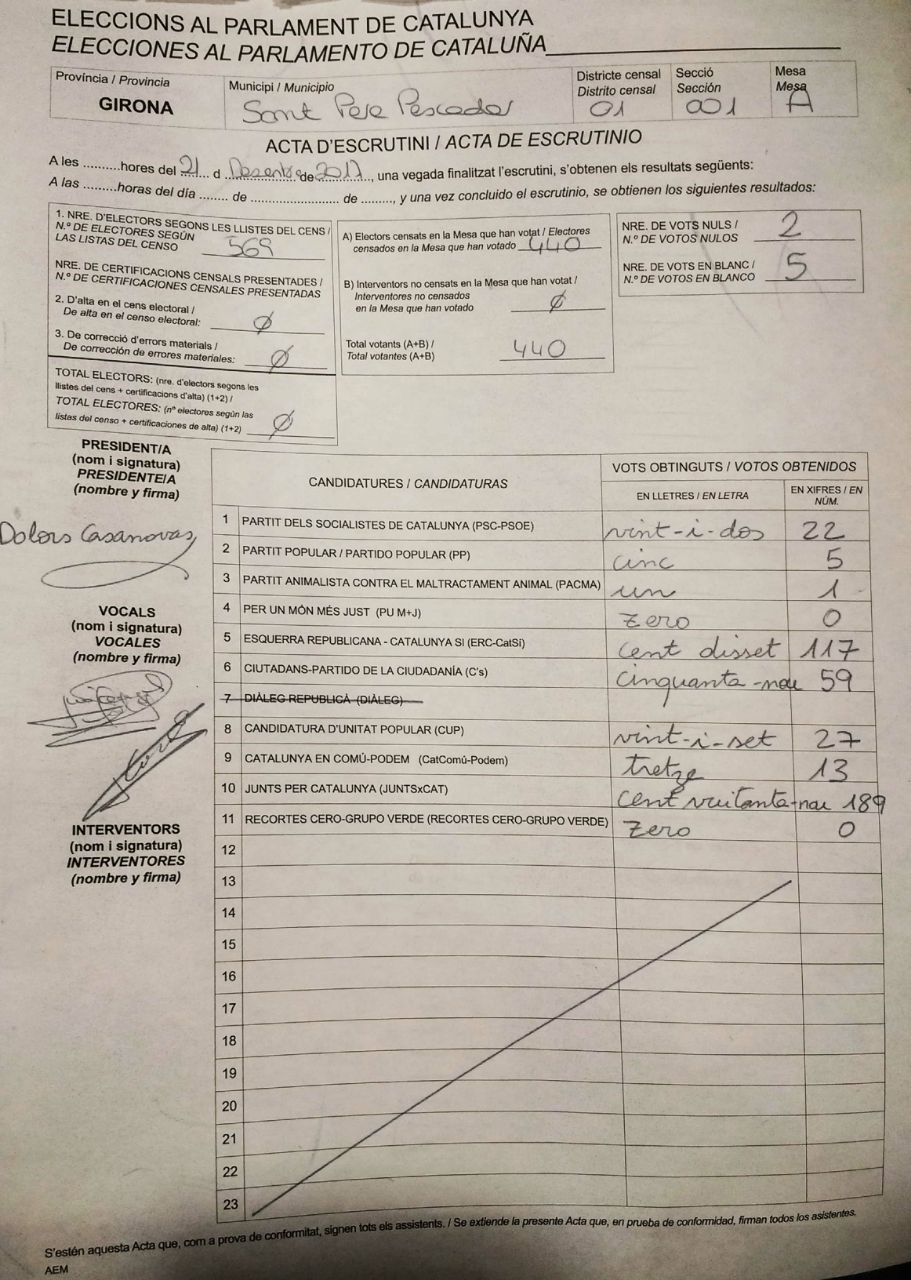 ELECCIONS AL PARLAMENT DE CATALUNYA
ELECCIONES AL PARLAMENTO DE CATALUÑA
Província / Provincia
GIRONA
Municipi / Municipio
Sant Pere Pescador
Districte censal
Distrito censal
01
Secció
Sección
001
Mesa
Mesa
A
ACTA D'ESCRUTINI / ACTA DE ESCRUTINIO
A les ..........hores del 21 d Desembre de 2017, una vegada finalitzat l'escrutini, s'obtenen els resultats següents:
A las .........horas del día ........ de ........................ de ........., y una vez concluido el escrutinio, se obtienen los siguientes resultados:
1. NRE. D'ELECTORS SEGONS LES LLISTES DEL CENS /
N.º DE ELECTORES SEGÚN
LAS LISTAS DEL CENSO 569
NRE. DE CERTIFICACIONS CENSALS PRESENTADES /
N.º DE CERTIFICACIONES CENSALES PRESENTADAS
2. D'alta en el cens electoral /
De alta en el censo electoral: Ø
3. De correcció d'errors materials /
De corrección de errores materiales: Ø
TOTAL ELECTORS: (nre. d'electors segons les
llistes del cens + certificacions d'alta) (1+2) /
TOTAL ELECTORES: (nº electores según las
listas del censo + certificaciones de alta) (1+2) Ø
A) Electors censats en la Mesa que han votat / Electores
censados en la Mesa que han votado 440
B) Interventors no censats en la Mesa que han votat /
Interventores no censados
en la Mesa que han votado Ø
Total votants (A+B) /
Total votantes (A+B) 440
NRE. DE VOTS NULS /
N.º DE VOTOS NULOS 2
NRE. DE VOTS EN BLANC /
N.º DE VOTOS EN BLANCO 5
PRESIDENT/A
(nom i signatura)
PRESIDENTE/A
(nombre y firma)
Dolors Casanovas
VOCALS
(nom i signatura)
VOCALES
(nombre y firma)
INTERVENTORS
(nom i signatura)
INTERVENTORES
(nombre y firma)
CANDIDATURES / CANDIDATURAS
VOTS OBTINGUTS / VOTOS OBTENIDOS
EN LLETRES / EN LETRA
EN XIFRES / EN
NÚM.
1 PARTIT DELS SOCIALISTES DE CATALUNYA (PSC-PSOE) vint-i-dos 22
2 PARTIT POPULAR / PARTIDO POPULAR (PP) cinc 5
3 PARTIT ANIMALISTA CONTRA EL MALTRACTAMENT ANIMAL (PACMA) un 1
4 PER UN MÓN MÉS JUST (PU M+J) zero 0
5 ESQUERRA REPUBLICANA - CATALUNYA SI (ERC-CatSi) cent disset 117
6 CIUTADANS-PARTIDO DE LA CIUDADANÍA (C's) cinquanta-nou 59
7 DIÀLEG REPUBLICÀ (DIÀLEG)
8 CANDIDATURA D'UNITAT POPULAR (CUP) vint-i-set 27
9 CATALUNYA EN COMÚ-PODEM (CatComú-Podem) tretze 13
10 JUNTS PER CATALUNYA (JUNTSxCAT) cent vuitanta-nou 189
11 RECORTES CERO-GRUPO VERDE (RECORTES CERO-GRUPO VERDE) Zero 0
12
13
14
15
16
17
18
19
20
21
22
23
S'estén aquesta Acta que, com a prova de conformitat, signen tots els assistents. / Se extiende la presente Acta que, en prueba de conformidad, firman todos los asistentes.
AEM